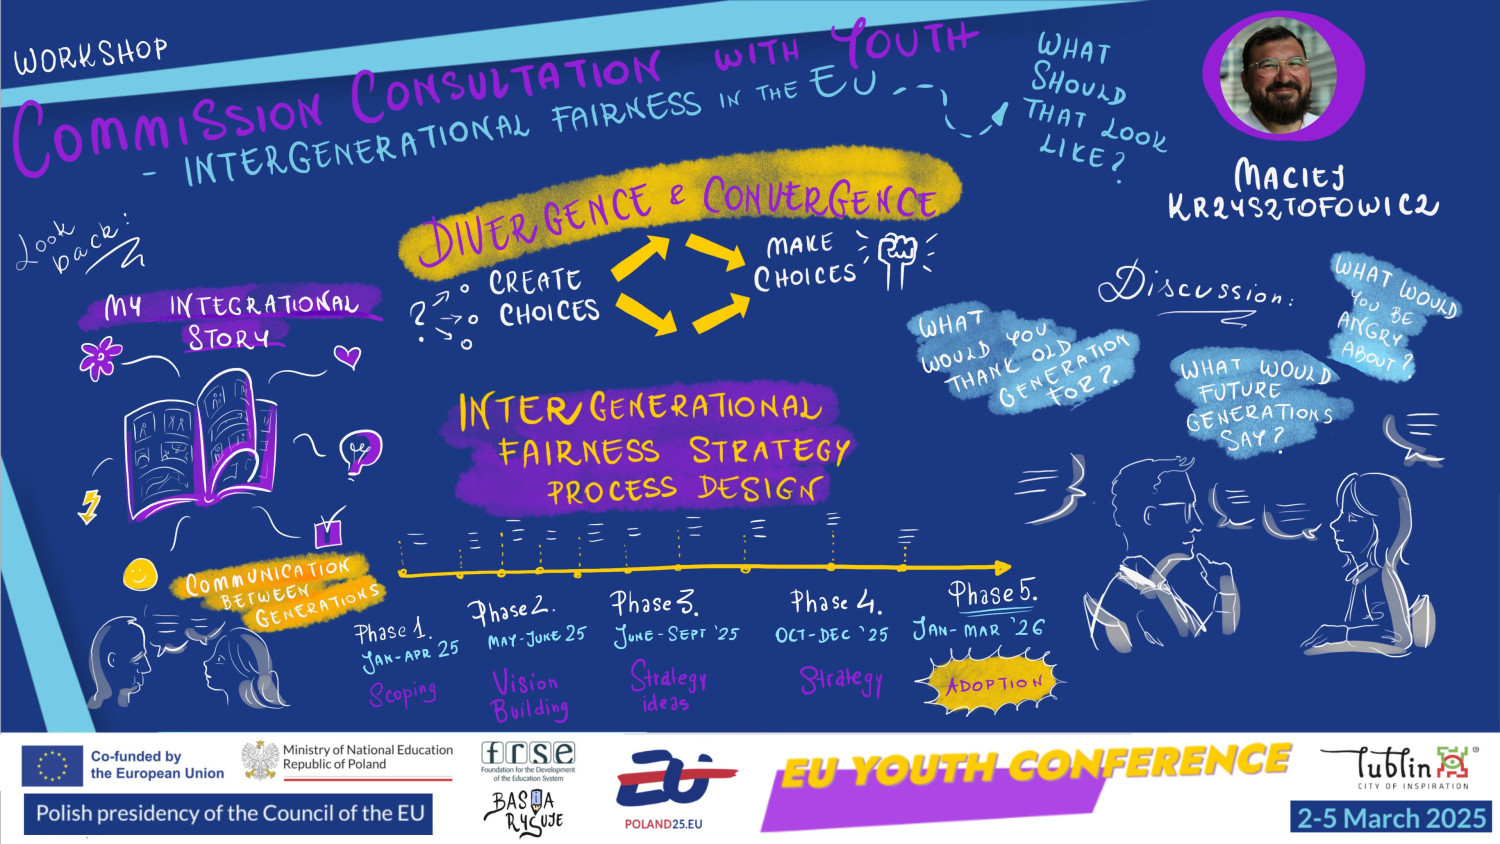 WORKSHOP
COMMISSION CONSULTATION WITH YOUTH
- INTERGENERATIONAL FAIRNESS IN THE EU
WHAT
SHOULD
THAT LOOK
LIKE?
MACIEJ
KRZYSZTOFOWICZ
Look
back:
MY INTEGRATIONAL
STORY
DIVERGENCE & CONVERGENCE
?
CREATE
CHOICES
MAKE
CHOICES
Discussion:
WHAT
WOULD YOU
THANK OLD
GENERATION
FOR?
WHAT WOULD
FUTURE
GENERATIONS
SAY?
WHAT WOULD
YOU BE
ANGRY
ABOUT?
INTERGENERATIONAL
FAIRNESS STRATEGY
PROCESS DESIGN
COMMUNICATION
BETWEEN
GENERATIONS
Phase 1.
JAN-APR 25
Scoping
Phase 2.
MAY-JUNE 25
Vision
Building
Phase 3.
JUNE-SEPT '25
Strategy
ideas
Phase 4.
OCT-DEC '25
Strategy
Phase 5.
JAN-MAR '26
ADOPTION
Co-funded by
the European Union
Ministry of National Education
Republic of Poland
Polish presidency of the Council of the EU
frse
Foundation for the Development
of the Education System
BASIA
RYSUJE
POLAND25.EU
EU YOUTH CONFERENCE
Lublin
CITY OF INSPIRATION
2-5 March 2025